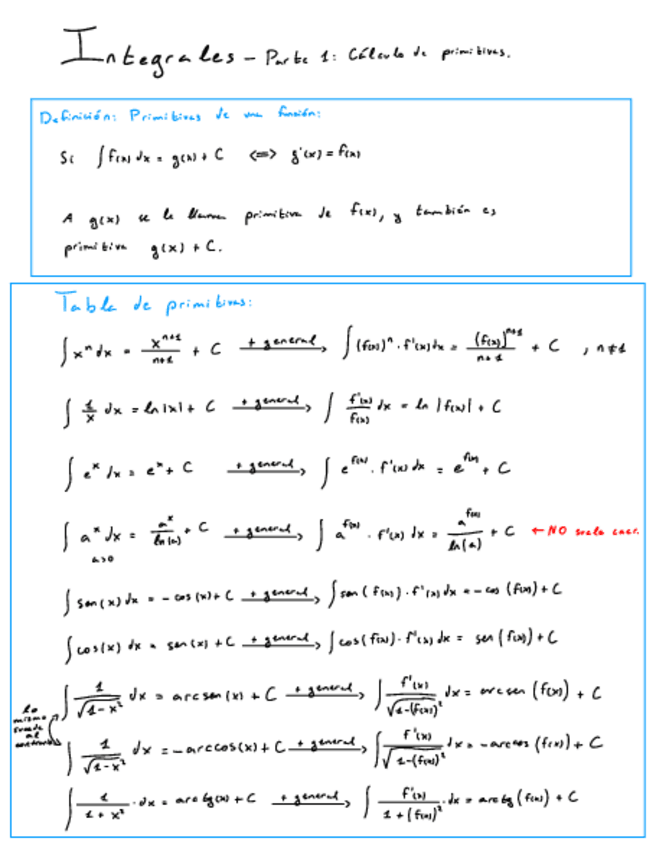 Integrales - Parte 1: Cálculo de primitivas.
Definición: Primitivas de una función:
Si ∫f(x) dx = g(x) + C <=> g'(x) = f(x)
A g(x) se le llama primitiva de f(x), y también es
primitiva g(x) + C.
Tabla de primitivas:
∫x^n dx = x^(n+1)/(n+1) + C + general → ∫(f(x))^n · f'(x) dx = (f(x))^(n+1)/(n+1) + C , n≠1
∫ 1/x dx = ln|x| + C + general → ∫ f'(x)/f(x) dx = ln |f(x)| + C
∫ e^x dx = e^x + C + general → ∫ e^f(x) · f'(x) dx = e^f(x) + C
∫ a^x dx = a^x/ln(a) + C + general → ∫ a^f(x) · f'(x) dx = a^f(x)/ln(a) + C ← NO suele caer.
a>0
∫sen(x) dx = -cos(x) + C + general → ∫sen(f(x)) · f'(x) dx = -cos(f(x)) + C
∫cos(x) dx = sen(x) + C + general → ∫cos(f(x)) · f'(x) dx = sen(f(x)) + C
∫ 1/√(1-x²) dx = arcsen(x) + C + general → ∫ f'(x)/√(1-(f(x))²) dx = arcsen(f(x)) + C
lo
mismo
sucede
al
∫ 1/√(1-x²) dx = -arccos(x) + C + general → ∫ f'(x)/√(1-(f(x))²) dx = -arccos(f(x)) + C
∫ 1/(1+x²) · dx = arctg(x) + C + general → ∫ f'(x)/(1+(f(x))²) · dx = arctg(f(x)) + C